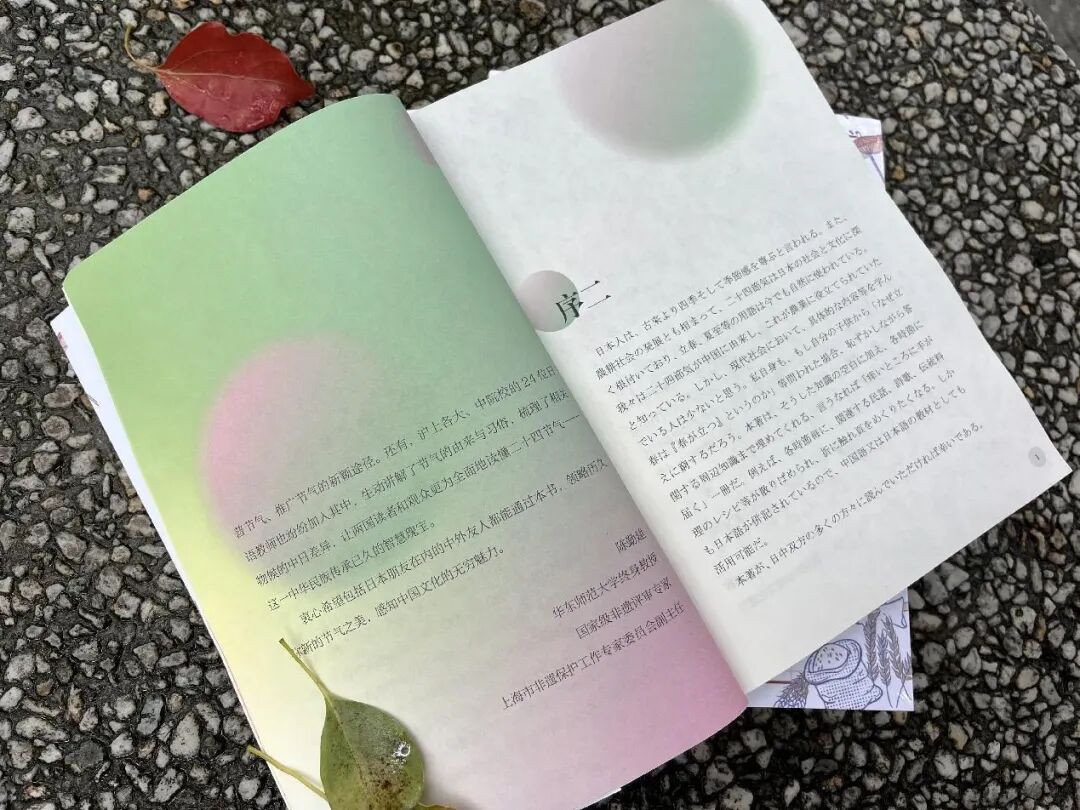 音节气、推广节气的崭新途径。还有，沪上各大、中院校的 24 位日
语教师也纷纷加入其中，生动讲解了节气的由来与习俗，梳理了相关
物候的中日差异，让两国读者和观众更为全面地读懂二十四节气——
这一中华民族传承已久的智慧瑰宝。
衷心希望包括日本朋友在内的中外友人都能通过本书，领略历久
弥新的节气之美，感知中国文化的无穷魅力。
陈勤建
华东师范大学终身教授
国家级非遗评审专家
上海市非遗保护工作专家委员会副主任
序二
日本人は、古来より四季そして季節感を尊ぶと言われる。また、
農耕社会の発展とも相まって、二十四節気は日本の社会と文化に深
く根付いており、立春、夏至等の用語は今でも自然に使われている。
我々は二十四節気が中国に由来し、これが農業に役立てられていた
と知っている。しかし、現代社会において、具体的な内容等を学ん
でいる人は少ないと思う。私自身も、もし自分の子供から「なぜ立
春は『春が立つ』というのか」等問われた場合、恥ずかしながら答
えに窮するだろう。本著は、そうした知識の空白に加え、各時節に
関する周辺知識まで埋めてくれる、言うなれば「痒いところに手が
届く」一冊だ。例えば、各段落毎に、関連する民謡、詩歌、伝統料
理のレシピ等が散りばめられ、折に触れ頁をめくりたくなる。しか
も日本語が併記されているので、中国語又は日本語の教材としても
活用可能だ。
本著が、日中双方の多くの方々に読んでいただければ幸いである。
1